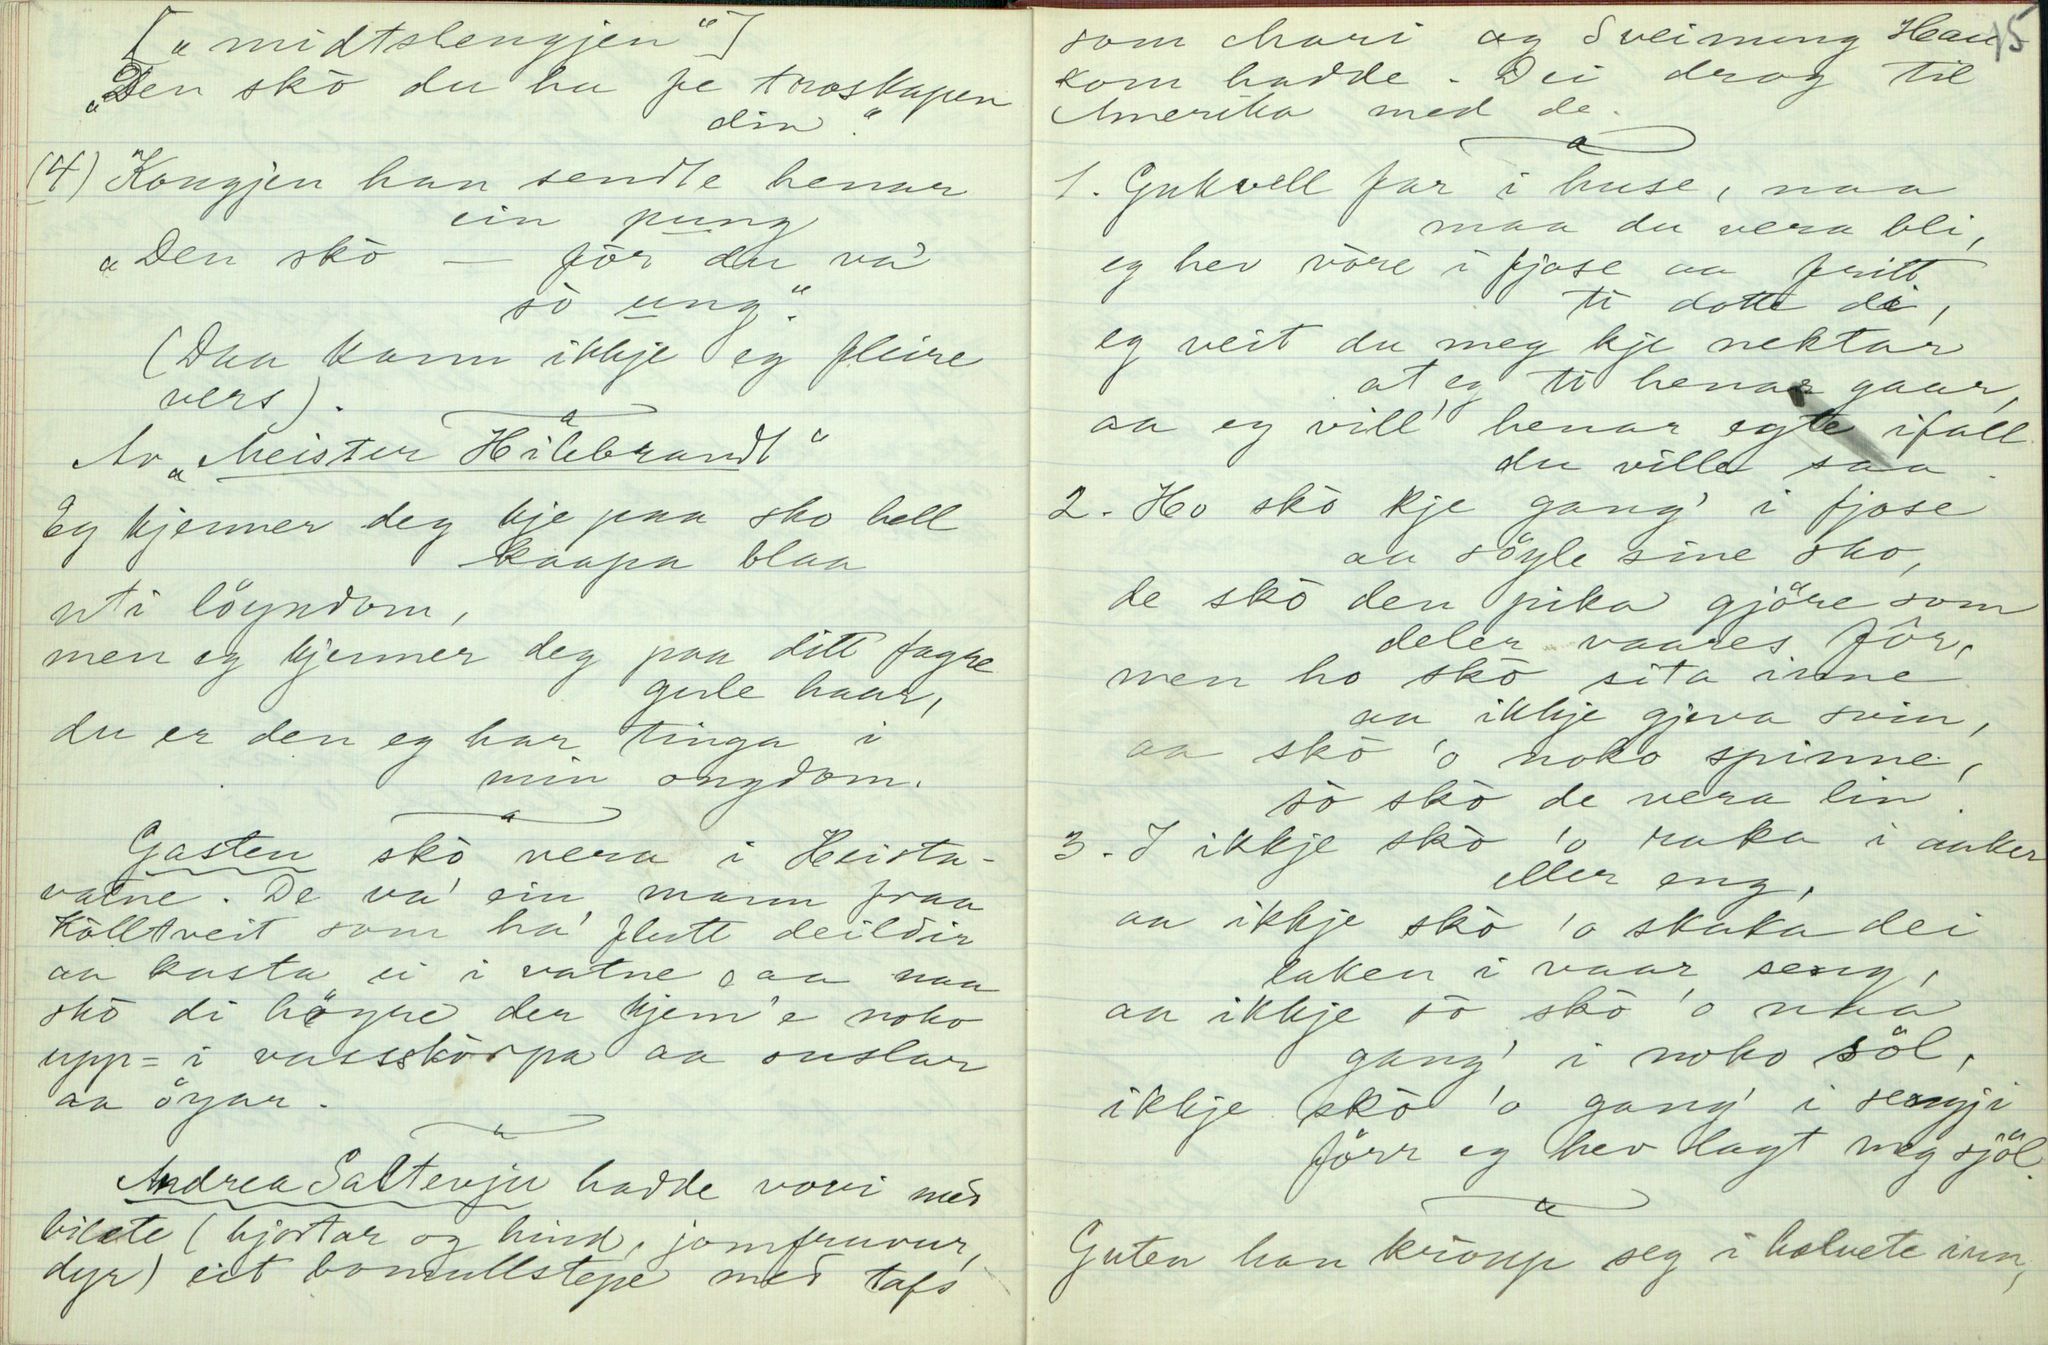 ["midtslengjen"]
"Den skò du ha fe troskapen
din."
(4) Kongjen han sendte henar
ein pung
"Den skò — fòr du va'
sò ung".
(Daa kann ikkje eg fleire
vers).
Av "Meister Hilebrandt"
Eg kjenner deg kje paa sko hell
kaapa blaa
uti löyndom,
men eg kjenner deg paa ditt fagre
gule haar,
du er den eg har tinga i
min ongdom.
Gasten skò vera i Heista-
vatne. De va' ein mann fraa
Kölltveit som ha' flutt deildir
aa kasta ei i vatne, aa naa
skò di högre der kjem'e noko
upp = i vassskòrpa aa uslar
aa öyar.
Andrea Saltevju hadde vovi med
bilete (hjortar og hind, jomfruvur,
dyr) eit bomullstepe med tafs
15
som Mari og Sveinung Hau
kom hadde. Dei drog til
Amerika med de.
1. Gukvell far i huse, naa
maa du vera bli,
eg hev vòre i fjose aa fritt
ti dotte di,
eg veit du meg kje nektar
at eg ti henar gaar,
aa eg vill' henar egte ifall
du ville saa.
2. Ho skò kje gang' i fjose
aa söyle sine sko,
de skò den pika gjöre som
deler vaares fôr,
men ho skò sita inne
aa ikkje gjeva svin,
aa skò 'o noko spinne,
sò skò de vera lin.
3. I ikkje skò 'o raka i aaker
eller eng,
aa ikkje skò 'o skaka dei
laken i vaar seng,
aa ikkje sò skò 'o naa
gang' i noko söl,
ikkje skò 'o gang' i sengji
förr eg hev lagt meg sjöl.
Guten han kraup seg i halvete inn,